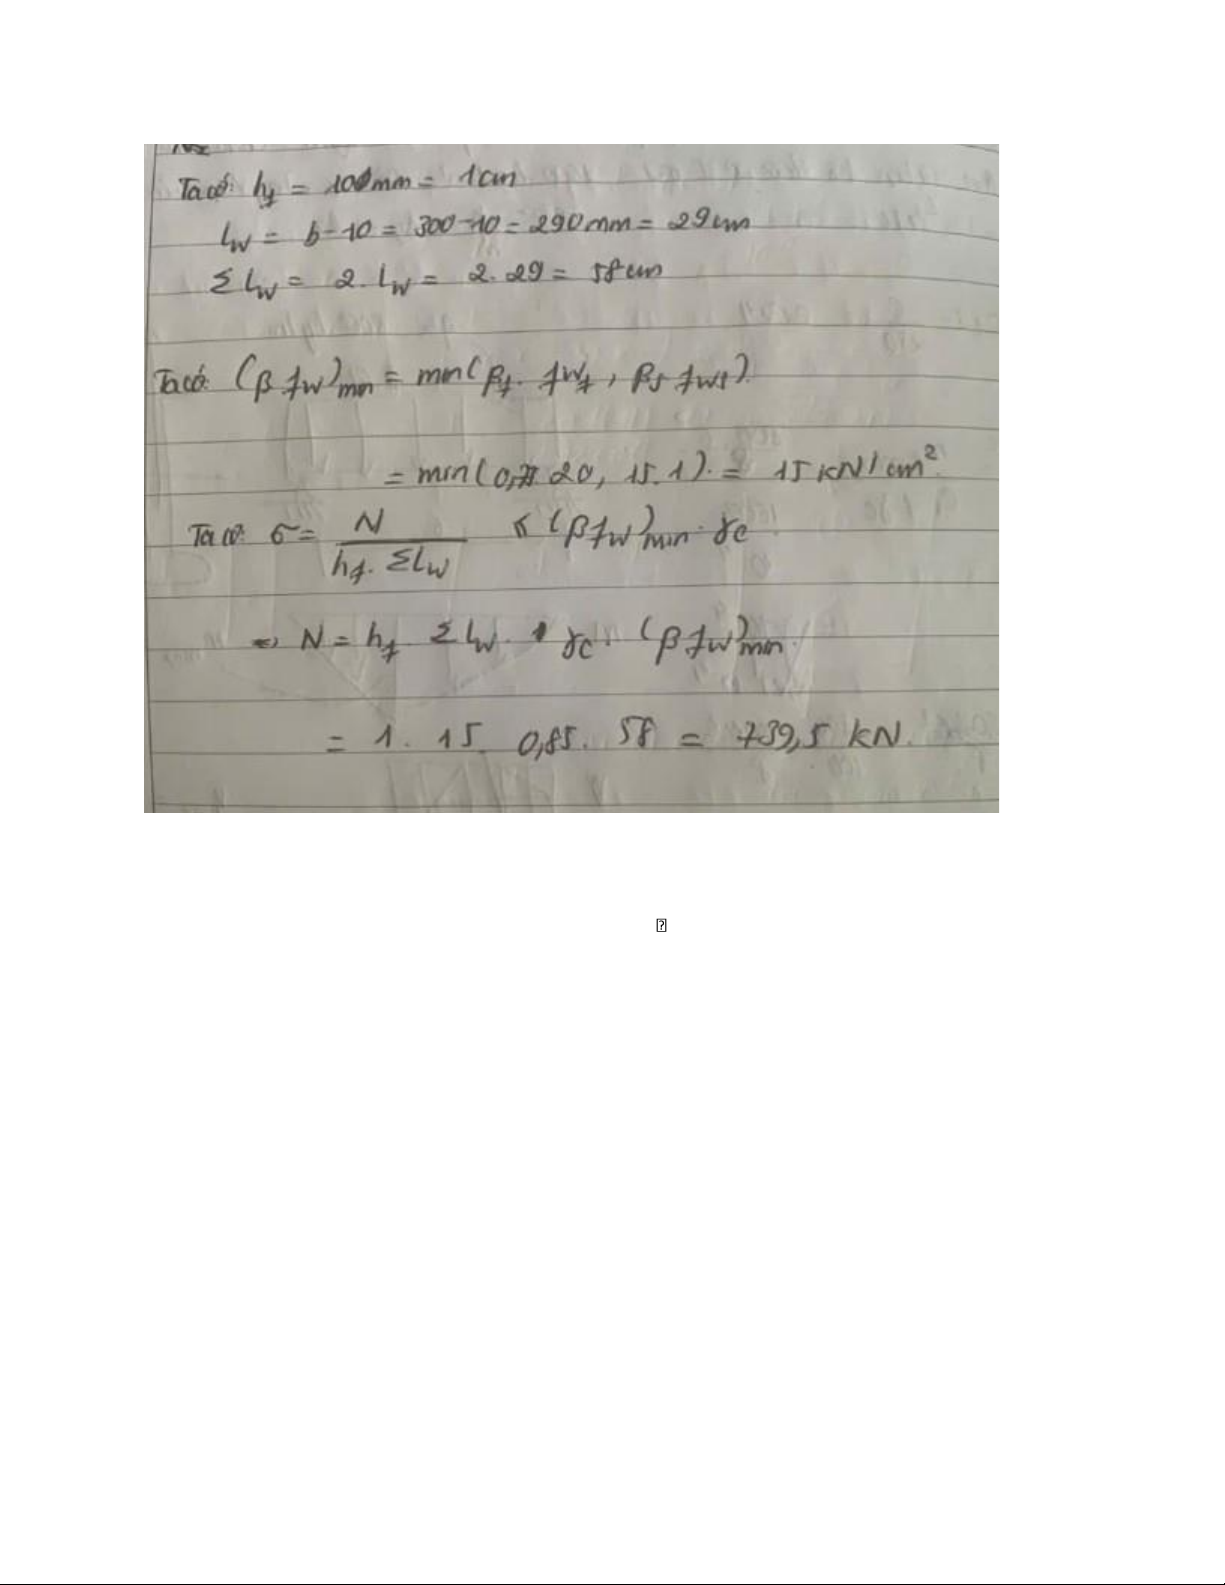 Ta có: hf = 100mm = 1cm
lw = b-10 = 300-10 = 290mm = 29cm
Σlw = 2.lw = 2.29 = 58cm
Ta có: (βfw)min = min(βf.fwf, βs fws)
= min(0,7.20, 15.1). = 15kN/cm²
Ta có: σ = N / hf.Σlw ≤ (βfw)min.γc
=> N = hf Σlw. γc. (βfw)min.
= 1. 15. 0,85. 58 = 739,5 kN.